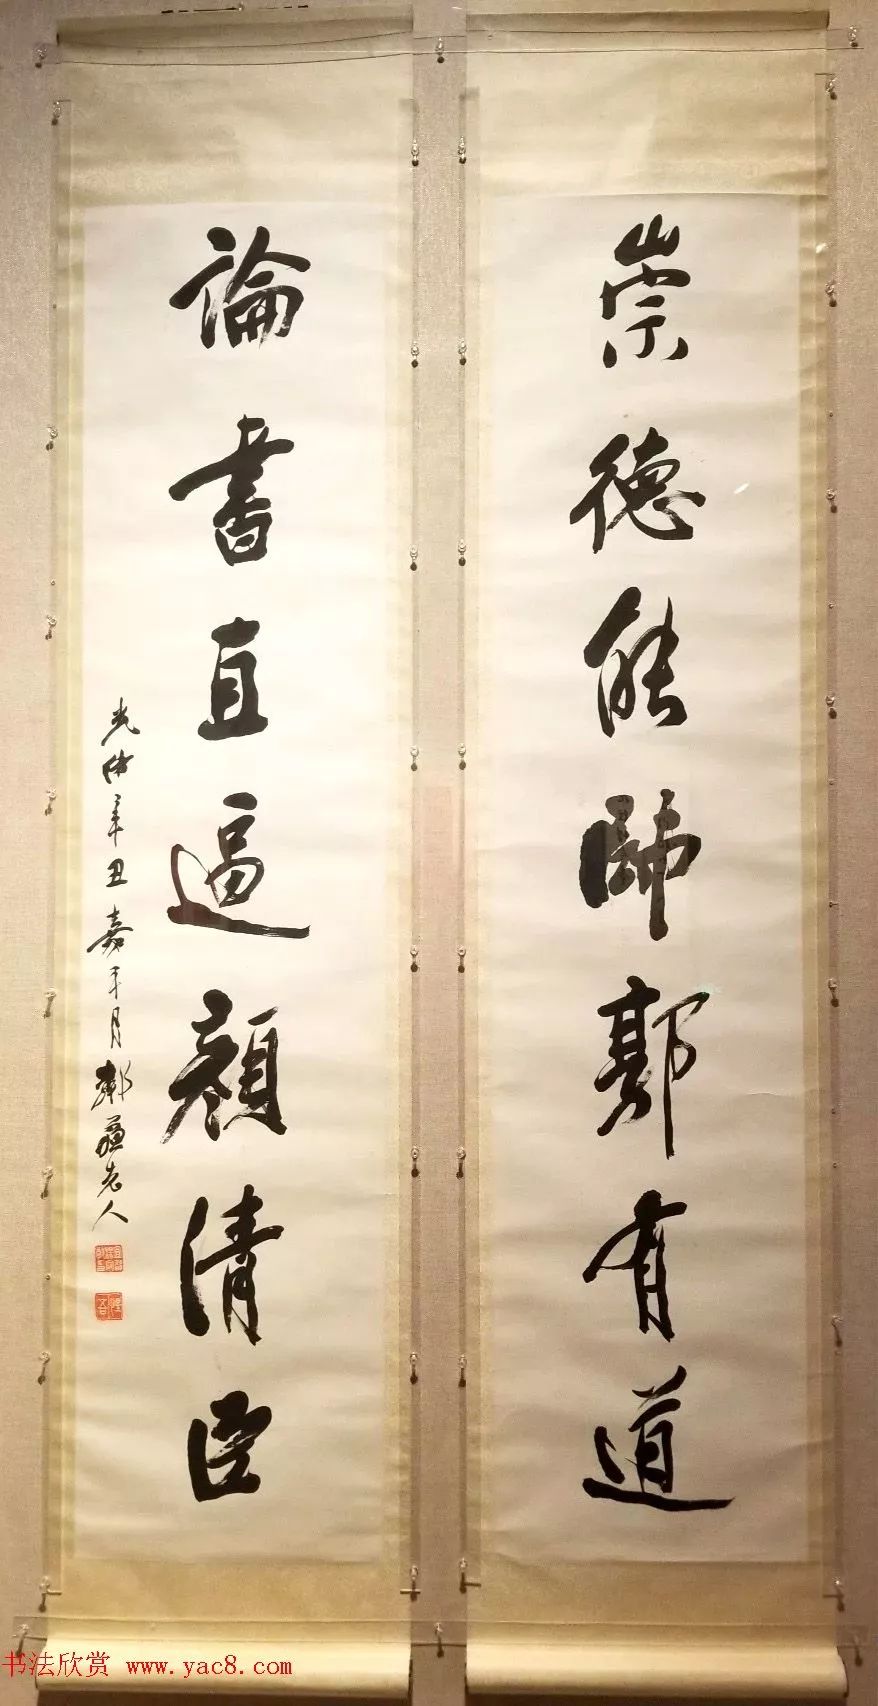 崇德能師郭有道
論書直逼顏清臣
光緒辛丑嘉平月鄰蘇老人
书法欣赏 www.yac8.com